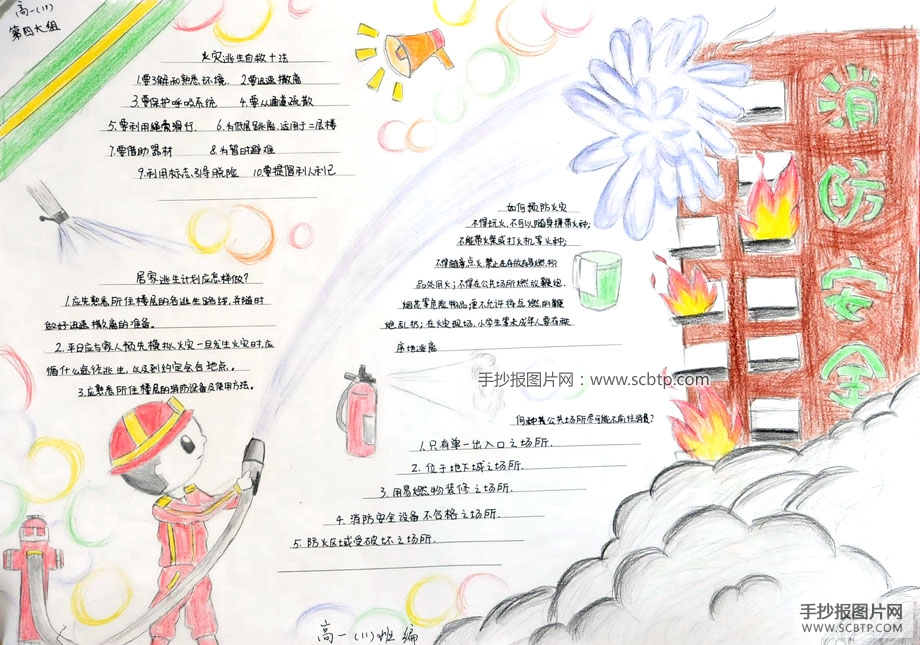 高一(11)
第四大组
火灾逃生自救十法
1.要了解和熟悉环境. 2.要迅速撤离
3.要保护呼吸系统 4.要从通道疏散
5.要利用绳索滑行. 6.为低层跳离,适用于二层楼
7.要借助器材 8.为暂时避难
9.利用标志引导脱险 10.要提倡利人利己
居家逃生计划应怎样做?
1.应先熟悉所住楼层的各逃生路线,并随时
做好迅速撤离的准备。
2.平日应与家人预先模拟火灾一旦发生火灾时,应
循什么路径逃生,以及到约定会合地点。
3.应熟悉所住楼层的消防设备及使用方法。
如何预防火灾
不得玩火,不可以随身携带火种;
不能带火柴或打火机等火种;
不得随意点火,禁止在存放易燃物
品处用火;不得在公共场所燃放鞭炮.
烟花等危险物品;更不允许将点燃的鞭
炮乱扔;在火灾现场,小学生等未成年人要有秩
序地逃离
手抄报图片网:www.scbtp.com
何种类公共场所尽可能不前往消费?
1.只有单一出入口之场所.
2.位于地下城之场所.
3.用易燃物装修之场所.
4.消防安全设备不合格之场所.
5.防火区域受破坏之场所.
消防安全
高一(11)班编
手抄报图片网
WWW.SCBTP.COM